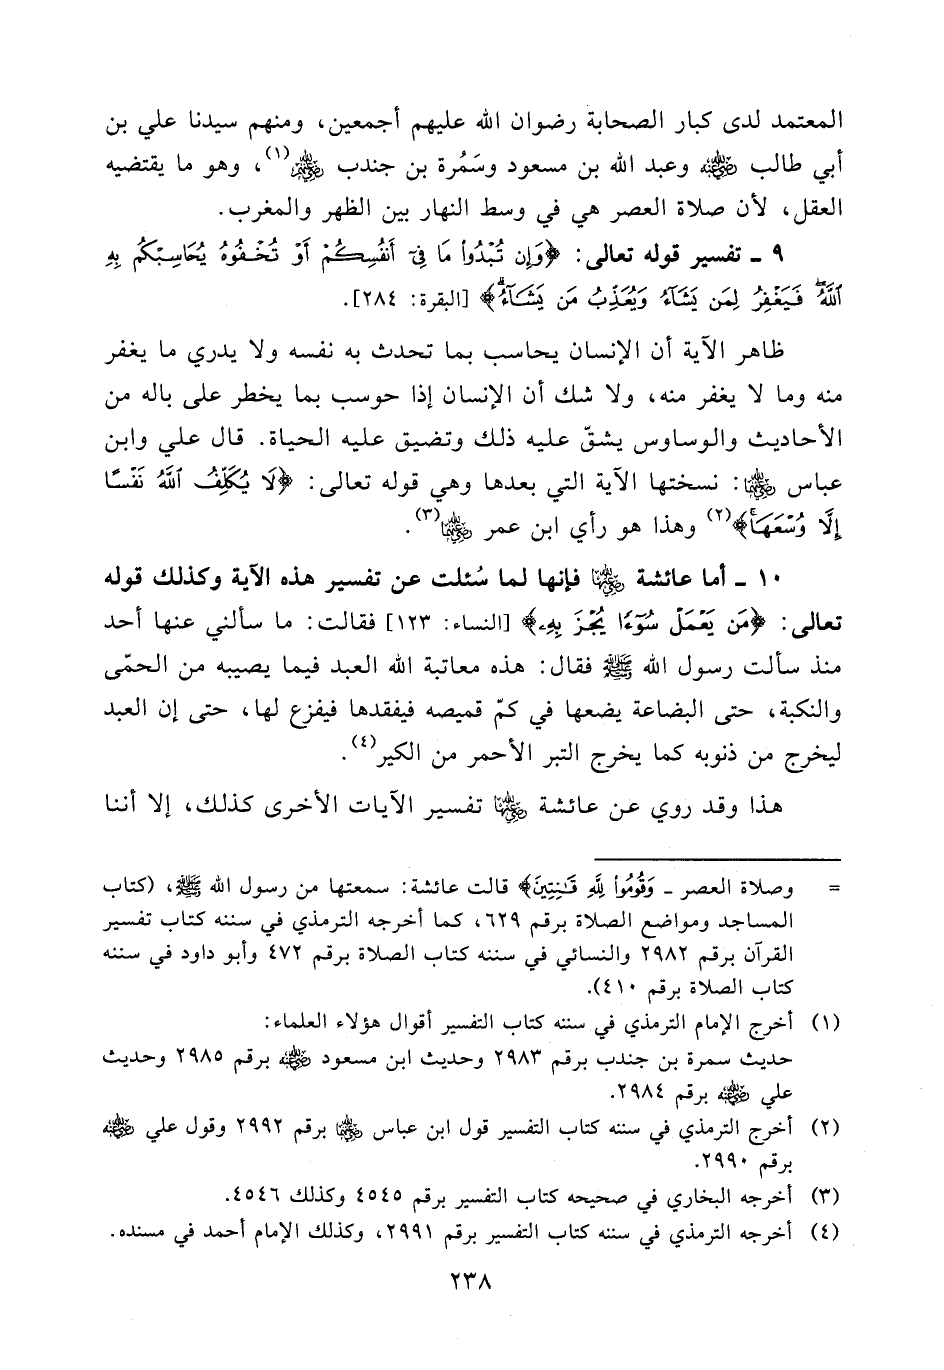 المعتمد لدى كبار الصحابة رضوان الله عليهم أجمعين، ومنهم سيدنا علي بن
أبي طالب رضي الله عنه وعبد الله بن مسعود وسَمُرة بن جندب رضي الله عنهم(١)، وهو ما يقتضيه
العقل، لأن صلاة العصر هي في وسط النهار بين الظهر والمغرب.
٩ ـ تفسير قوله تعالى: ﴿وَإِن تُبْدُوا۟ مَا فِىٓ أَنفُسِكُمْ أَوْ تُخْفُوهُ يُحَاسِبْكُم بِهِ
ٱللَّهُ ۖ فَيَغْفِرُ لِمَن يَشَآءُ وَيُعَذِّبُ مَن يَشَآءُ ۗ﴾ [البقرة: ٢٨٤].
ظاهر الآية أن الإنسان يحاسب بما تحدث به نفسه ولا يدري ما يغفر
منه وما لا يغفر منه، ولا شك أن الإنسان إذا حوسب بما يخطر على باله من
الأحاديث والوساوس يشقّ عليه ذلك وتضيق عليه الحياة. قال علي وابن
عباس رضي الله عنهما: نسختها الآية التي بعدها وهي قوله تعالى: ﴿لَا يُكَلِّفُ ٱللَّهُ نَفْسًا
إِلَّا وُسْعَهَا ۚ﴾(٢) وهذا هو رأي ابن عمر رضي الله عنهما(٣).
١٠ ـ أما عائشة رضي الله عنها فإنها لما سُئلت عن تفسير هذه الآية وكذلك قوله
تعالى: ﴿مَن يَعْمَلْ سُوٓءًا يُجْزَ بِهِۦ﴾ [النساء: ١٢٣] فقالت: ما سألني عنها أحد
منذ سألت رسول الله ﷺ فقال: هذه معاتبة الله العبد فيما يصيبه من الحمّى
والنكبة، حتى البضاعة يضعها في كمّ قميصه فيفقدها فيفزع لها، حتى إن العبد
ليخرج من ذنوبه كما يخرج التبر الأحمر من الكير(٤).
هذا وقد روي عن عائشة رضي الله عنها تفسير الآيات الأخرى كذلك، إلا أننا
= وصلاة العصر ـ وَقُومُوا۟ لِلَّهِ قَـٰنِتِينَ﴾ قالت عائشة: سمعتها من رسول الله ﷺ، (كتاب
المساجد ومواضع الصلاة برقم ٦٢٩، كما أخرجه الترمذي في سننه كتاب تفسير
القرآن برقم ٢٩٨٢ والنسائي في سننه كتاب الصلاة برقم ٤٧٢ وأبو داود في سننه
كتاب الصلاة برقم ٤١٠).
(١) أخرج الإمام الترمذي في سننه كتاب التفسير أقوال هؤلاء العلماء:
حديث سمرة بن جندب برقم ٢٩٨٣ وحديث ابن مسعود رضي الله عنه برقم ٢٩٨٥ وحديث
علي رضي الله عنه برقم ٢٩٨٤.
(٢) أخرج الترمذي في سننه كتاب التفسير قول ابن عباس رضي الله عنهما برقم ٢٩٩٢ وقول علي رضي الله عنه
برقم ٢٩٩٠.
(٣) أخرجه البخاري في صحيحه كتاب التفسير برقم ٤٥٤٥ وكذلك ٤٥٤٦.
(٤) أخرجه الترمذي في سننه كتاب التفسير برقم ٢٩٩١، وكذلك الإمام أحمد في مسنده.
٢٣٨